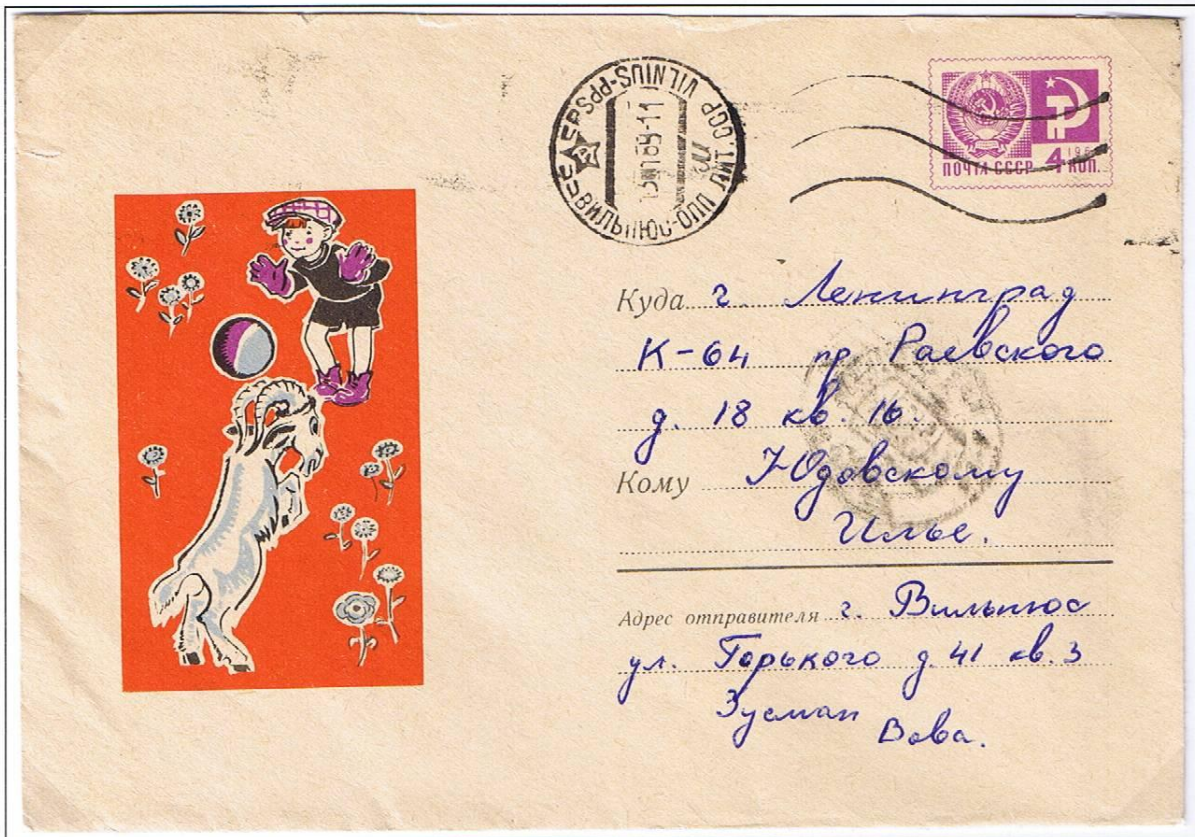 VILNIUS-PPS
ЛИТ. ССР
ВИЛЬНЮС-ОПП
ПОЧТА СССР 4 КОП.
Куда г Ленинград
К-64 пр Раевского
д. 18 кв. 16.
Кому Юдовскому
Илье.
Адрес отправителя г. Вильнюс
ул. Горького д. 41 кв. 3
Зусман
Вова.